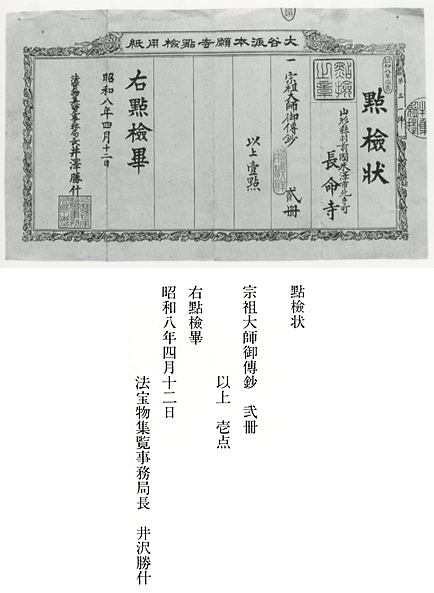 大谷派本願寺點檢用紙
點檢状
山形縣羽前國米澤市北寺町
長命寺
點檢之章
一 宗祖大師御傳鈔 貳冊
以上壹點
右點檢畢
昭和八年四月十二日
法寳物蒐覽事務局長井澤勝什
點檢状
宗祖大師御傳鈔 弐冊
以上 壱点
右點檢畢
昭和八年四月十二日
法宝物集覧事務局長 井沢勝什